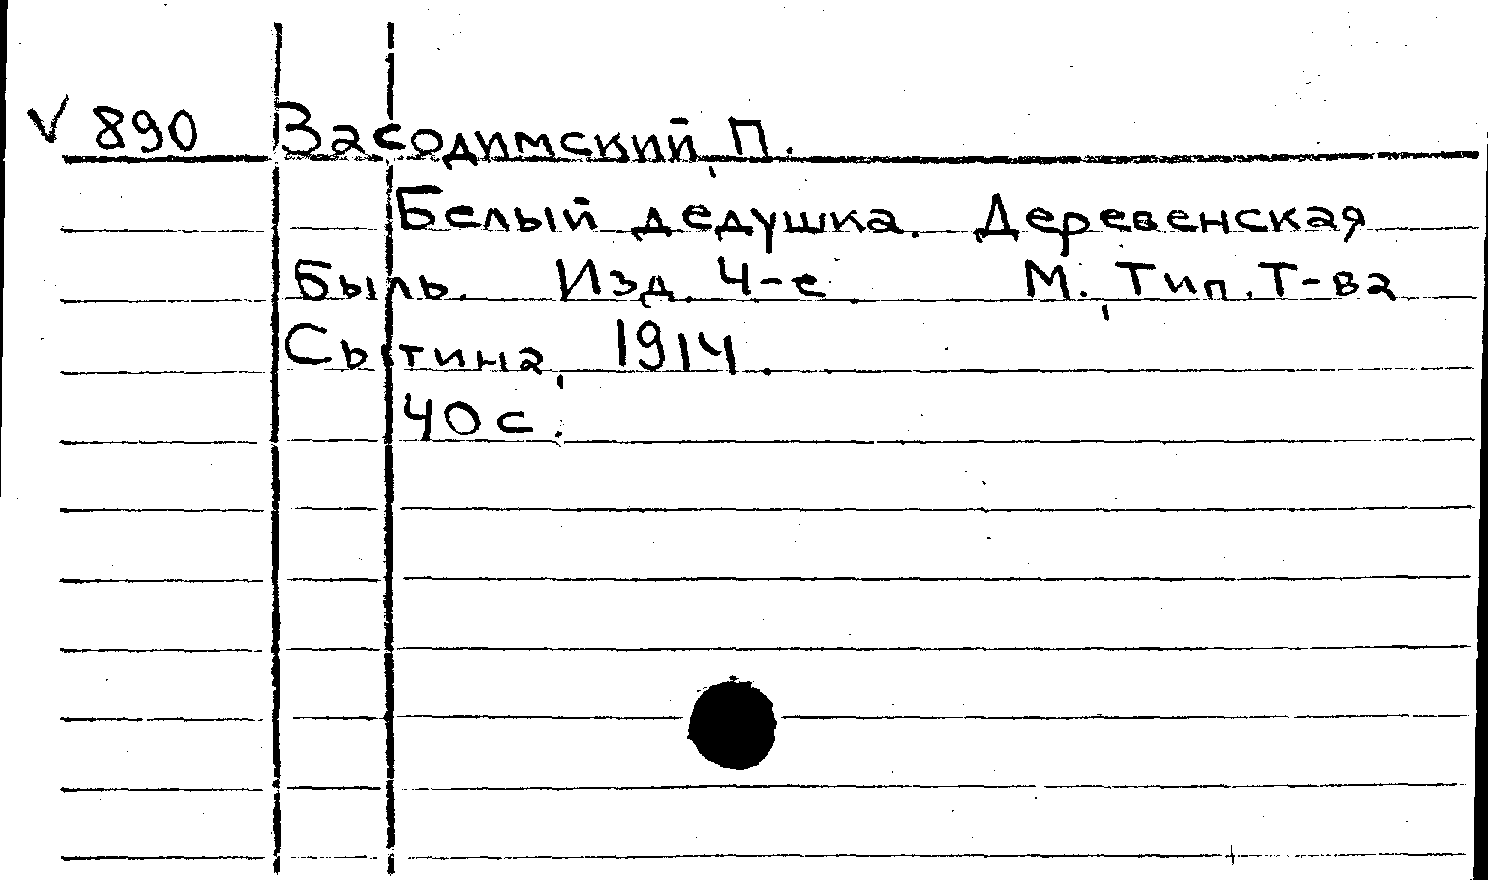 V 890 Засодимский, П.
Белый дедушка. Деревенская
быль. Изд. 4-е. М., Тип. Т-ва
Сытина, 1914.
40 с.